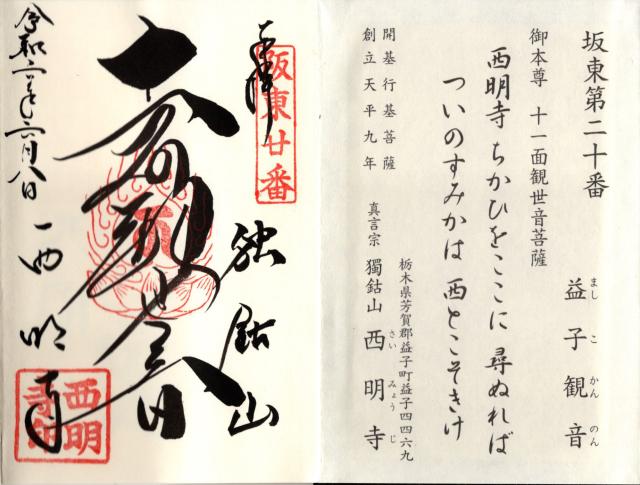 坂東第二十番
益子観音
ましこかんのん
御本尊 十一面観世音菩薩
西明寺 ちかひをここに 尋ぬれば
ついのすみかは 西とこそきけ
開基行基菩薩
創立天平九年
栃木県芳賀郡益子町益子四四六九
真言宗 獨鈷山 西明寺
さいみょうじ
奉拝
坂東廿番
独鈷山
西明寺
令和二年六月八日
西明寺印